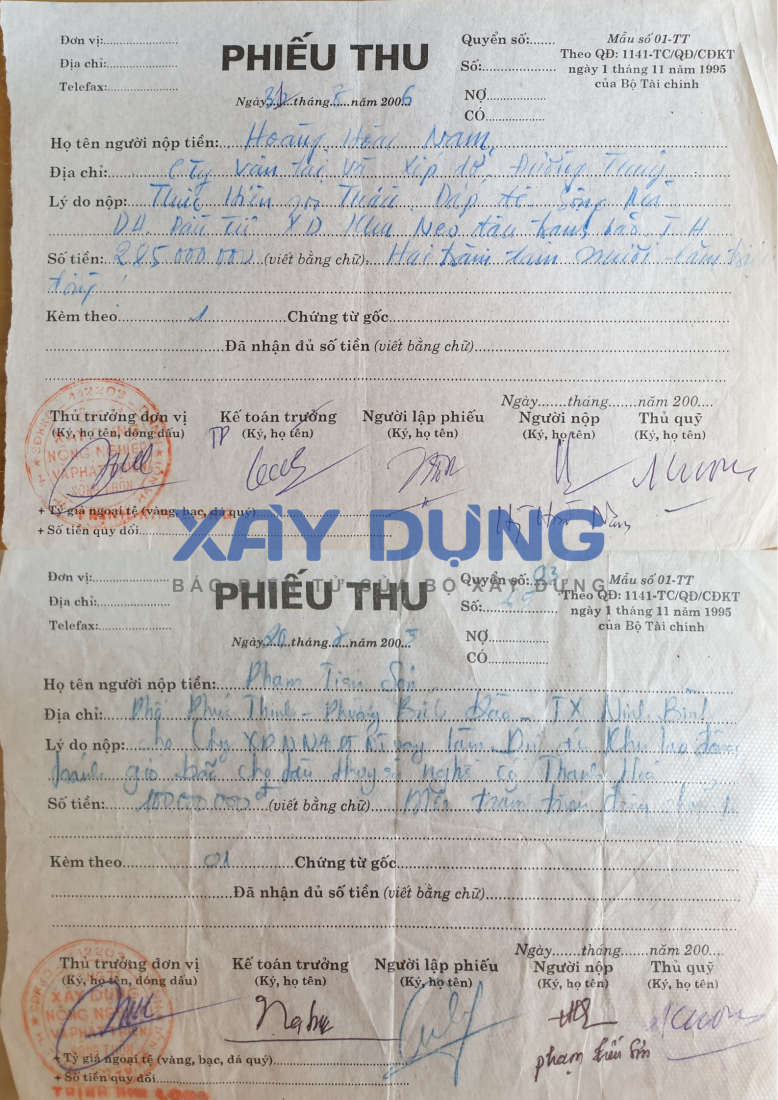 Đơn vị:........................
Địa chỉ:.......................
Telefax:.......................
PHIẾU THU
Quyển số:.......
Số:...................
NỢ...................
CÓ...................
Mẫu số 01-TT
Theo QĐ: 1141-TC/QĐ/CĐKT
ngày 1 tháng 11 năm 1995
của Bộ Tài chính
Ngày 31 tháng 8 năm 2006
Họ tên người nộp tiền: Hoàng Hoài Nam
Địa chỉ: Cty vận tải và xếp dỡ Đường
Lý do nộp: Thực hiện Thầu Đắp đê
DA. Đầu Tư XD Khu Neo đậu tránh bão T.H
Số tiền: 285.000.000 (viết bằng chữ): Hai trăm tám mươi lăm triệu
đồng
Kèm theo 1 Chứng từ gốc
Đã nhận đủ số tiền (viết bằng chữ)
Ngày.......tháng.......năm 200....
Thủ trưởng đơn vị Kế toán trưởng Người lập phiếu Người nộp Thủ quỹ
(Ký, họ tên, đóng dấu) TP (Ký, họ tên) (Ký, họ tên) (Ký, họ tên) (Ký, họ tên)
XÂY DỰNG
NÔNG NGHIỆP
+ Tỷ giá ngoại tệ (vàng, bạc, đá quý)
+ Số tiền quy đổi
XÂY DỰNG
BÁO ĐIỆN TỬ CỦA BỘ XÂY DỰNG
Đơn vị:........................
Địa chỉ:.......................
Telefax:.......................
PHIẾU THU
Quyển số: 03
Số:
NỢ...................
CÓ...................
Mẫu số 01-TT
Theo QĐ: 1141-TC/QĐ/CĐKT
ngày 1 tháng 11 năm 1995
của Bộ Tài chính
Ngày 20 tháng năm 2005
Họ tên người nộp tiền: Phạm Tiến Sơn
Địa chỉ: Phố Phúc Thịnh - Phường Bích Đào - TX Ninh Bình
Lý do nộp: cho Cty XD NN & PTNT vay làm Dự án Khu
tránh gió bão cho tàu thuyền nghề cá Thanh Hoá
Số tiền: 100.000.000đ (viết bằng chữ) Một trăm triệu đồng chẵn
Kèm theo 01 Chứng từ gốc
Đã nhận đủ số tiền (viết bằng chữ)
Ngày.......tháng.......năm 200....
Thủ trưởng đơn vị Kế toán trưởng Người lập phiếu Người nộp Thủ quỹ
(Ký, họ tên, đóng dấu) (Ký, họ tên) (Ký, họ tên) (Ký, họ tên) (Ký, họ tên)
XÂY DỰNG
NÔNG NGHIỆP
phạm tiến Sơn
+ Tỷ giá ngoại tệ (vàng, bạc, đá quý)
+ Số tiền quy đổi